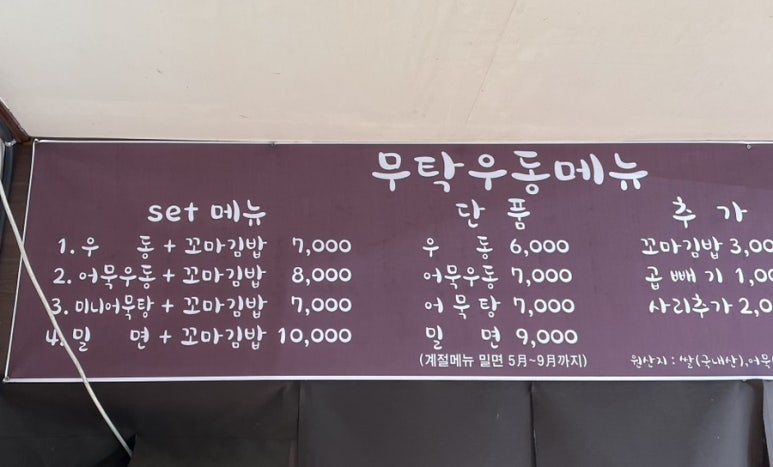 무탁우동메뉴
set 메뉴
1. 우 동 + 꼬마김밥 7,000
2. 어묵우동 + 꼬마김밥 8,000
3. 미니어묵탕 + 꼬마김밥 7,000
4. 밀 면 + 꼬마김밥 10,000
단 품
우 동 6,000
어묵우동 7,000
어 묵 탕 7,000
밀 면 9,000
(계절메뉴 밀면 5月~9月까지)
추 가
꼬마김밥 3,00
곱 빼 기 1,00
사리추가 2,0
원산지 : 쌀(국내산),어묵(